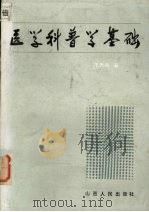 医学科普学基础
研狗
山西人民出版社